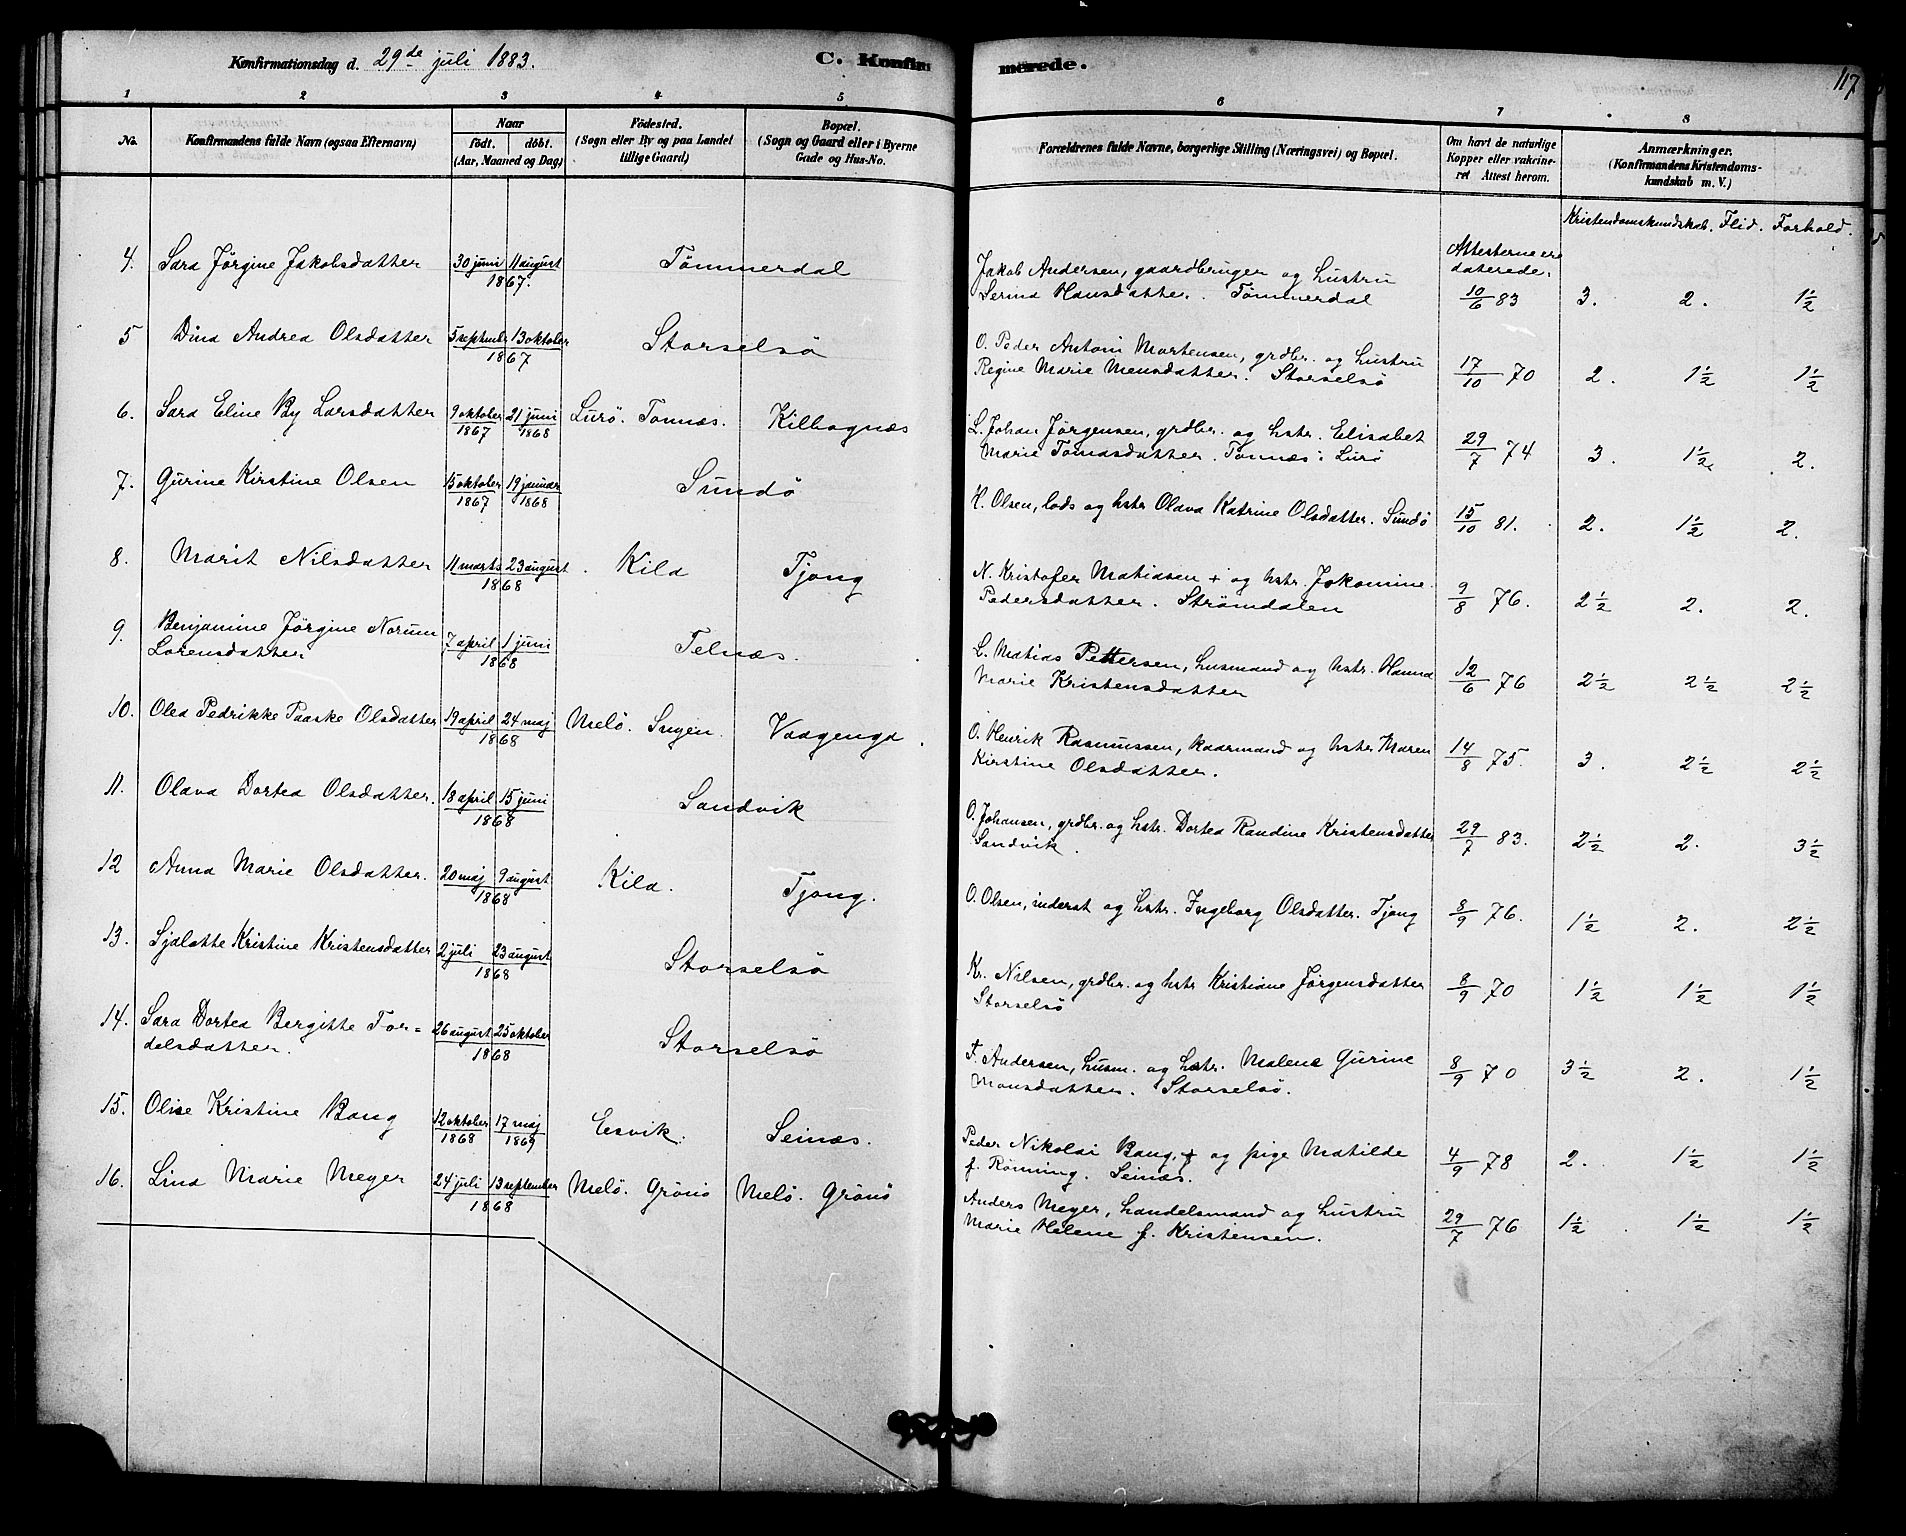 Konfirmationsdag d. 29de juli 1883.
C. Konfirmerede.
117
1 2 3 4 5 6 7 8
No.
Konfirmandens fulde Navn (ogsaa Efternavn)
Naar
födt. döbt.
(Aar, Maaned og Dag)
Födested.
(Sogn eller By og paa Landet
tillige Gaard)
Bopæl.
(Sogn og Gaard eller i Byerne
Gade og Hus-No.
Forældrenes fulde Navne, borgerlige Stilling (Næringsvei) og Bopæl.
Om havt de naturlige
Kopper eller vakcine-
ret Attest herom.
Anmærkninger.
(Konfirmandens Kristendoms-
kundskab m. V.)
Kristendomskundskab. Flid. Forhold.
Attesterne ere
daterede:
4. Sara Jørgine Jakobsdatter 30 juni 11 august 1867. Tømmerdal Jakob Andersen, gaardbruger og hustru
Serina Hansdatter. Tømmerdal 10/6 83 3. 2. 1½
5 Dina Andrea Olsdatter 5 septembr 13 oktober 1867 Storselsö O. Peder Antoni Mortensen, grdbr. og hustru
Regine Marie Monsdatter. Storselsö 17/10 70 2. 1½ 1½
6. Sara Eline By Larsdatter 9 oktober 1867 21 juni 1868 Lurö. Tonnæs. Kilbognæs L. Johan Jörgensen, grdbr. og hstr. Elisabet
Marie Tomasdatter. Tonnæs i Lurö 29/7 74 3. 1½ 2.
7. Gurine Kirstine Olsen 15 oktober 1867 19 januar 1868 Sundö H. Olsen, lods og hstr Olava Katrine Olsdatter. Sundö 15/10 81. 2. 1½ 2.
8. Marit Nilsdatter 11 marts 23 august 1868 Kila Tjong N. Kristofer Matiasen + og hstr. Jokomine
Pedersdatter. Strømdalen 9/8 76. 2½ 2. 2.
9. Benjamine Jörgine Norum
Lorensdatter 7 april 1 juni 1868 Telnæs. L. Matias Pettersen, husmand og hstr. Hanna
Marie Kristensdatter 12/6 76 2½ 2½ 2½
10. Olea Pedrikke Paaske Olsdatter 19 april 24 maj 1868 Melö. Ingen. Vaagenga. O. Henrik Rasmussen, kaarmand og hstr Maren
Kirstine Olsdatter. 14/8 75. 3. 2½ 2½
11. Olava Dortea Olsdatter. 18 april 15 juni 1868 Sandvik O. Johansen, grdbr. og hstr. Dortea Randine Kristensdatter
Sandvik. 29/7 83. 2½ 2. 3½
12 Anna Marie Olsdatter. 20 maj 9 august 1868 Kila. Tjong. O. Olsen, inderst og hstr. Ingeborg Olsdatter. Tjong 8/9 76. 1½ 2. 2½
13. Sjalotte Kristine Kristensdatter 2 juli 23 august 1868 Storselsö Kr. Nilsen, grdbr. og hstr Kristiane Jörgensdatter
Storselsö 8/9 70 1½ 1½ 1½
14. Sara Dortea Bergitte Tor=
dalsdatter. 26 august 25 oktober 1868 Storselsö T. Andersen, husm. og hstr. Malene Gurine
Monsdatter. Storselsö. 8/9 70 3½ 2. 1½
15. Olise Kristine Bang 12 oktober 1868 17 maj 1869 Esvik. Seinæs. Peder Nikolai Bang, + og pige Matilde
f. Rönning. Seinæs. 4/9 78 2. 1½ 1½
16. Lina Marie Meyer 24 juli 13 september 1868 Melö. Grönö Melö. Grönö Anders Meyer, handelsmand og hustru
Marie Helene f. Kristensen. 29/7 76 1½ 1½ 1½